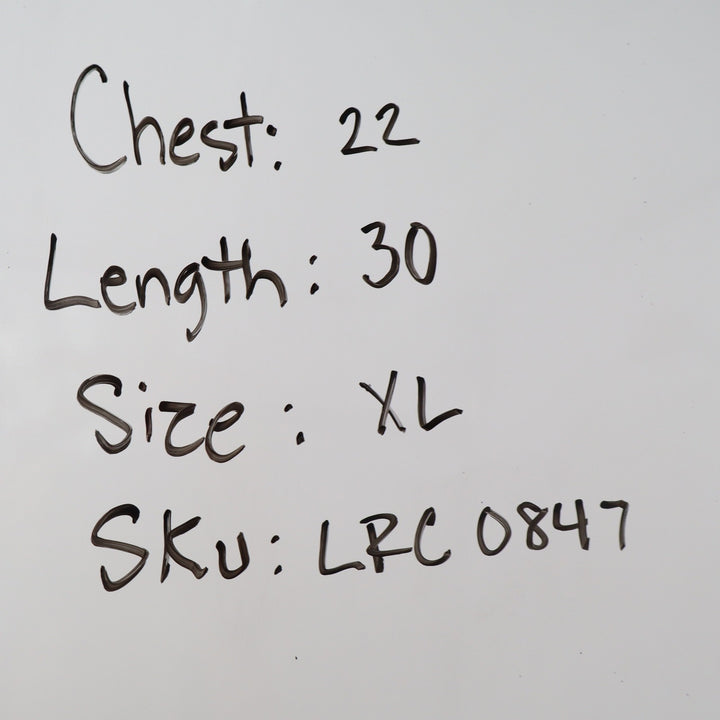 Chest: 22
Length: 30
Size: XL
SKu: LRC 0847